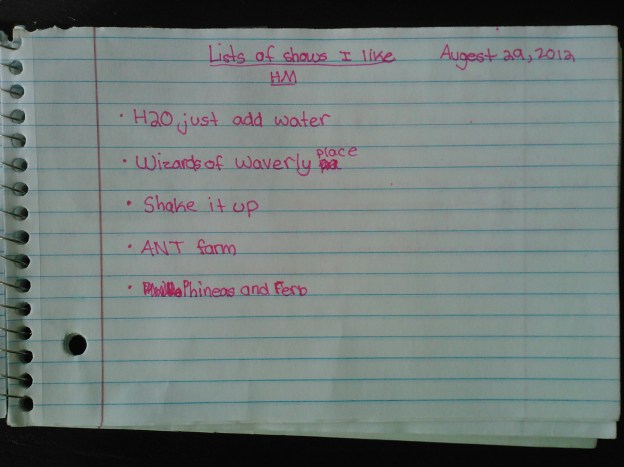 Lists of shows I like August 29, 2012
HM
• H2O, just add water
• Wizards of Waverly place
• Shake it up
• ANT farm
• Phineas and Ferb